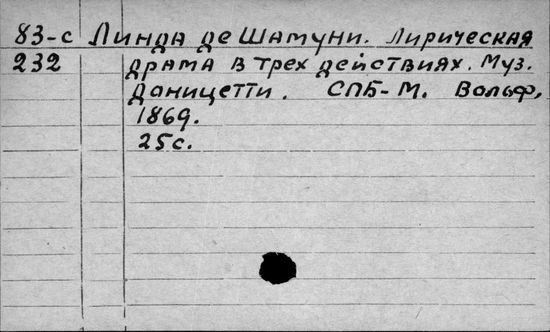 83-с Линда де Шамуни. Лирическая
232 драма в трех действиях. Муз.
Доницетти. СПБ-М. Вольф,
1869.
25с.